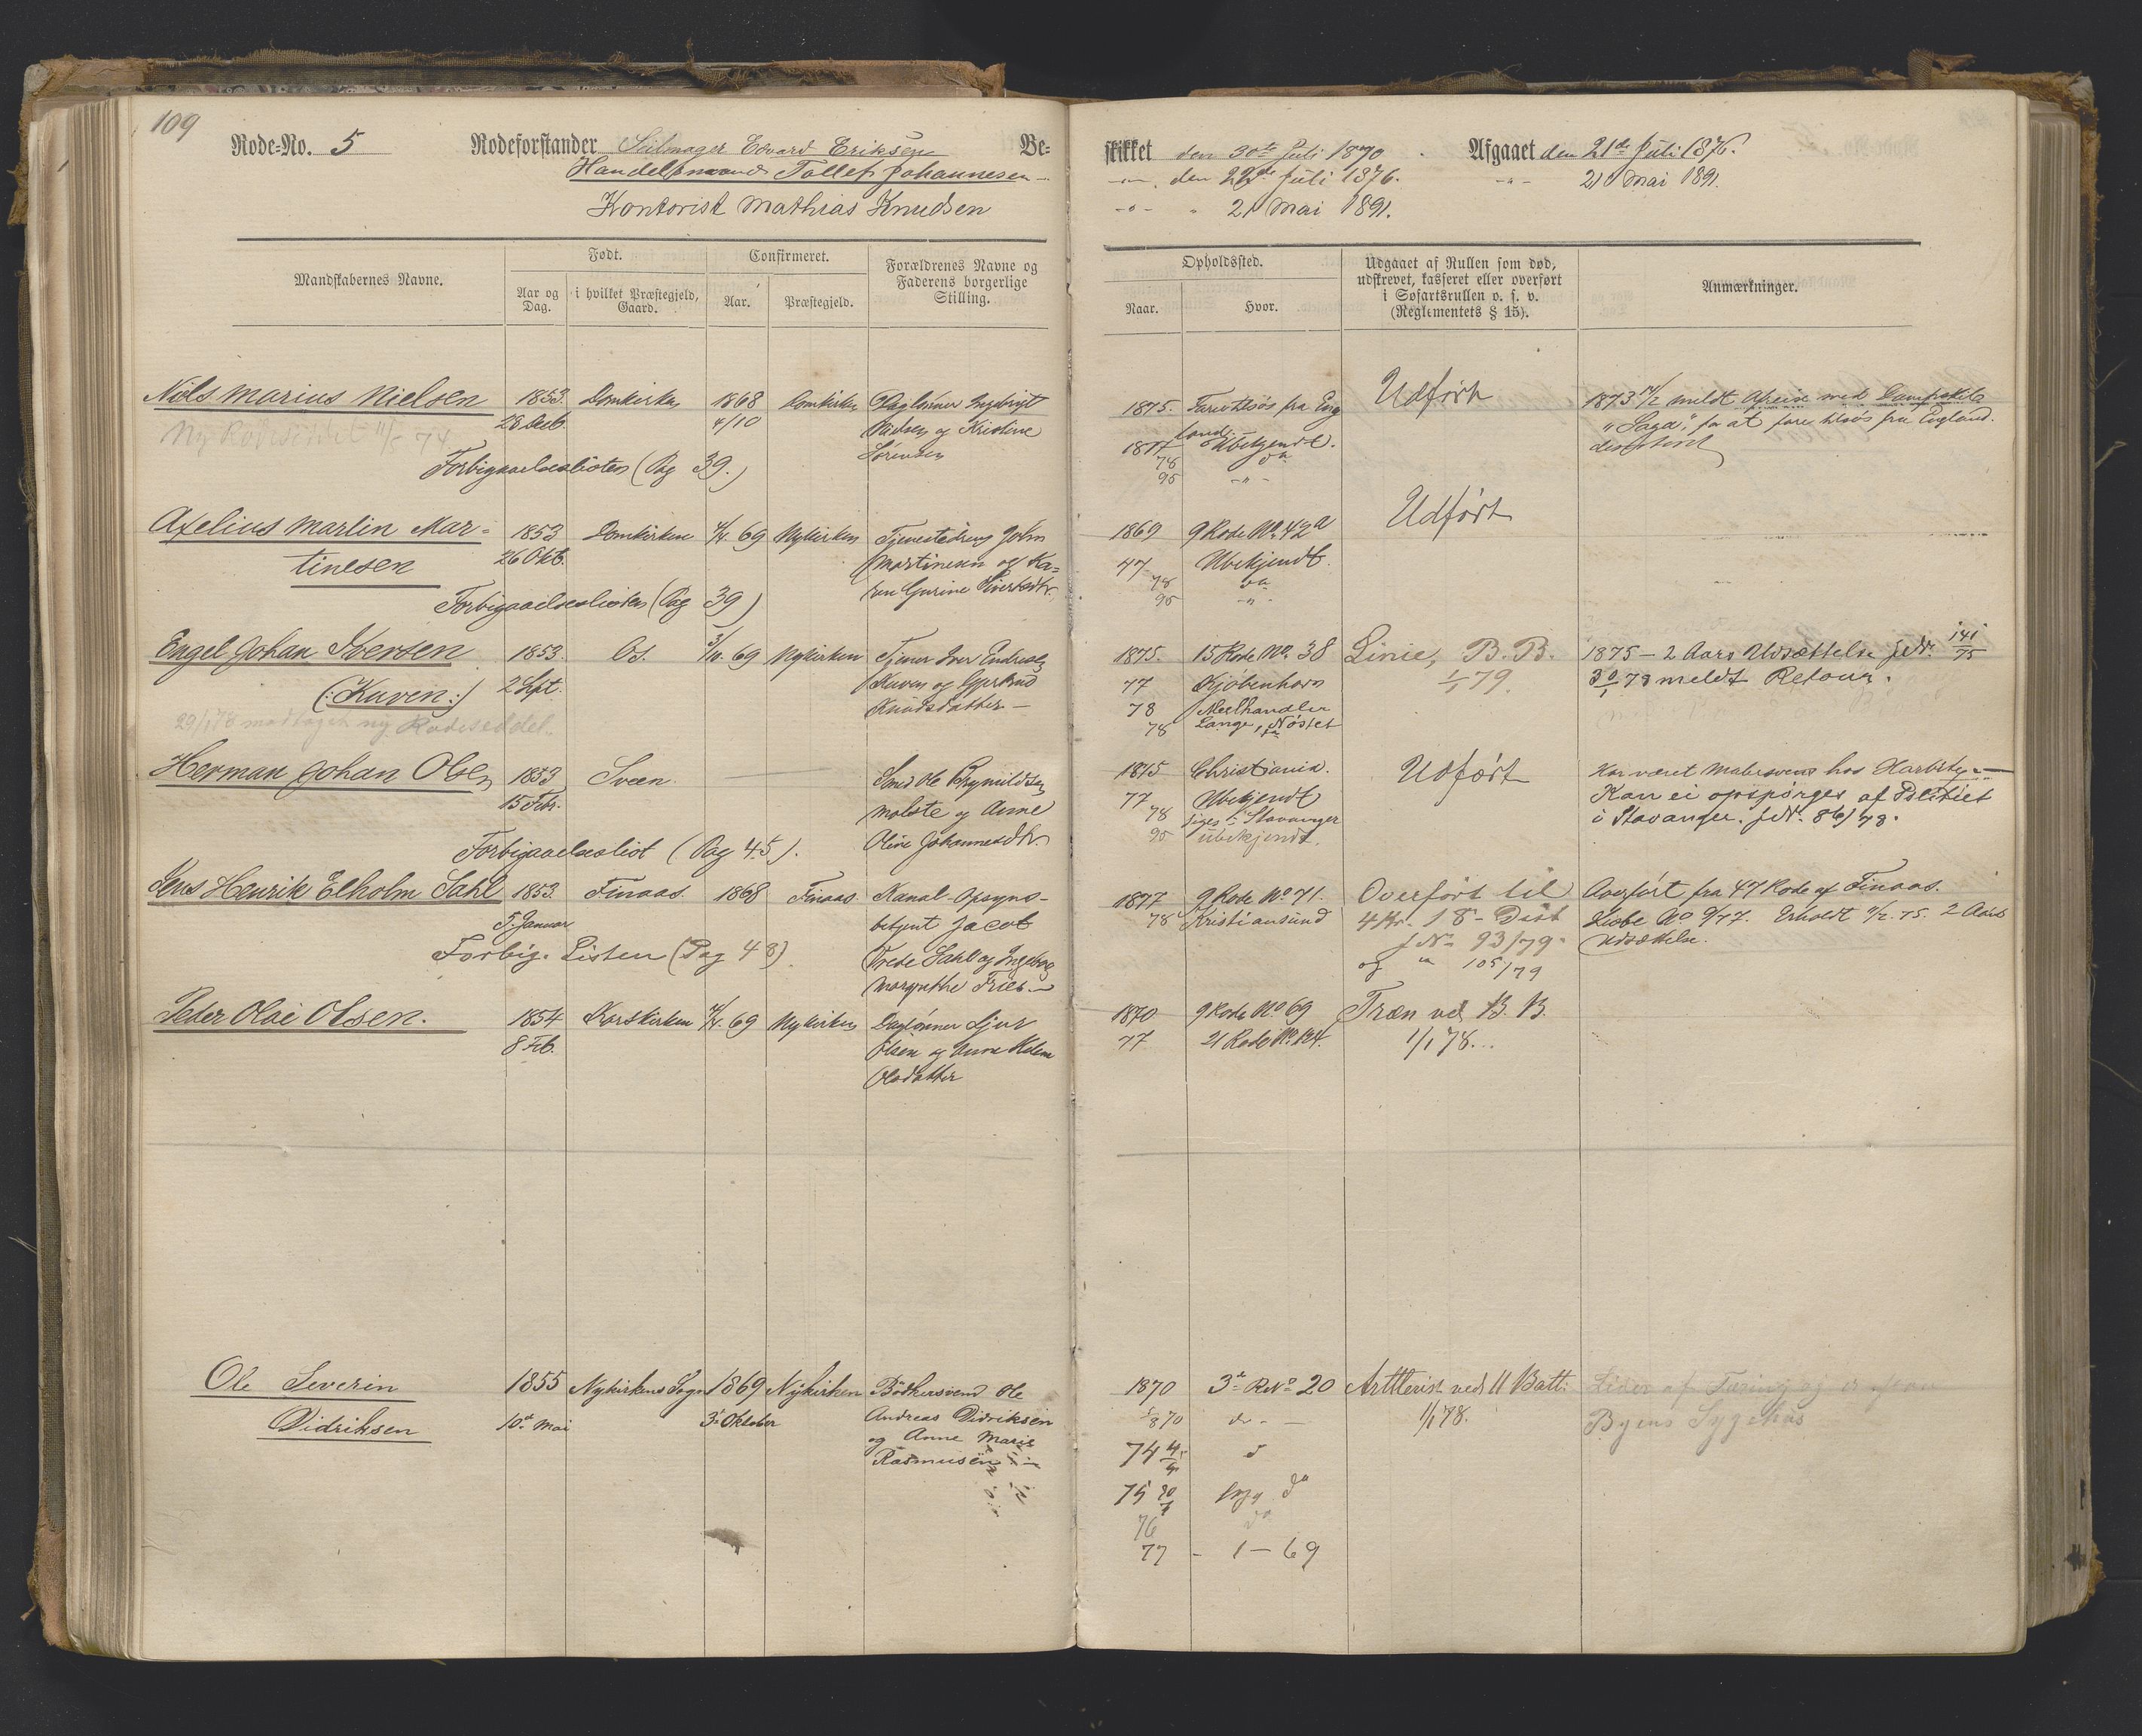 109
Rode-No. 5 Rodeforstander Seilmager Edvard Eriksen Be-
Handelsmand Tollef Johannesen
Kontorist Mathias Knudsen
Mandskabernes Navne.
Født.
Aar og Dag.
i hvilket Præstegjeld, Gaard.
Confirmeret.
Aar.
Præstegjeld.
Forældrenes Navne og
Faderens borgerlige
Stilling.
Niels Marius Nielsen 1853 Domkirken 1868 Domkirken Daglønner Ingebrigt
28 Decb. 4/10 Nielsen og Kristine
Ny Rodeseddel 74
Sørensen
Forbigaaelseslisten (Pag 39.)
Axelius Martin Mar- 1853 Domkirken 69 Nykirken Tjenestedreng John
tinesen 26 Okt. Martinesen og Ka-
ren Gurine Sivertsdtr.
Forbigaaelseslisten (Pag 39)
Engel Johan Iversen 1853. Os. 69 Nykirken Tjener Iver Endresen
(:Kuven:) 2 Sept. Kuven og Gjertrud
Knudsdatter —
29/1 78 modtaget ny Rodeseddel.
Herman Johan Olsen 1853 Sveen. Smed Ole Brynildsen
15 Febr. Molste og Anne
Oline Johannesdtr.
Forbigaaelseslist (Pag 45).
Jens Henrik Elholm Sahl 1853. Finaas. 1868 Finaas. Kanal-Opsyns-
7. Januar betjent Jacob
Forbig. Listen (Pag 48) Trede Sahl og Ingeborg
Margrethe Fries —
Peder Olai Olsen. 1854 Korskirken 69 Nykirken Daglønner Sjur
8 Feb. Olsen og Anne Helene
Olsdatter
Ole Severin 1855 Nykirkens Sogn 1869 Nykirken Bödkersvend Ole
Didriksen 10de Mai 3 Oktober Andreas Didriksen
og Anne Marie
Rasmusen
skikket den 30te Juli 1870. Afgaaet den 21de Juli 1876.
—"— den 22de Juli 1876. —"— 21 Mai 1891.
—"— " 21 Mai 1891.
Opholdssted.
Naar.
Hvor.
Udgaaet af Rullen som død,
udskrevet, kasseret eller overført
i Søfartsrullen o. s. v.
(Reglementets § 15).
Anmærkninger.
1875. Fare tilsös fra Eng Udført 1873 meldt Afreise med Dampskib
land. "Saga", for at fare tilsös fra England.
1877 Ubekjendt.
78 do
95 —"—
1869 9 Rode No. 42a Udført
77 Ubekjendt.
78 do
95 —"—
1875. 15 Rode No. 38 Linie, B. B. 1875 — 2 Aars Udsættelse JNr. 141/75
77 Kjöbenhavn 1/1 79. 30/1 78 meldt Retour.
78 Melhandler
78 Lange, Nøstet
1875 Christiania. Udført Har været Malersvend hos
77 Ubekjendt Kan ei opspörges af Politiet
78 siges i Stavanger i Stavanger. JNr. 86/78.
95 Ubekjendt.
1877 9 Rode No 71. Overført til Overfört fra 47 Rode af Finaas.
78 Kristiansund 18 - Dist Løbe No 9/77. Erholdt 75. 2 Aars
JNr 93/79. Udsættelse.
og " 105/79
1870 9 Rode No 69 Træn ved B. B.
77 21 Rode No 124. 1/1 78.
1870 3de R No 20 Artillerist ved 11 Batt: Lider af Tæring og er
870 do — 1/1 78. Byens Sygehus
74 d
75 do
76 do
77 - 1 — 69